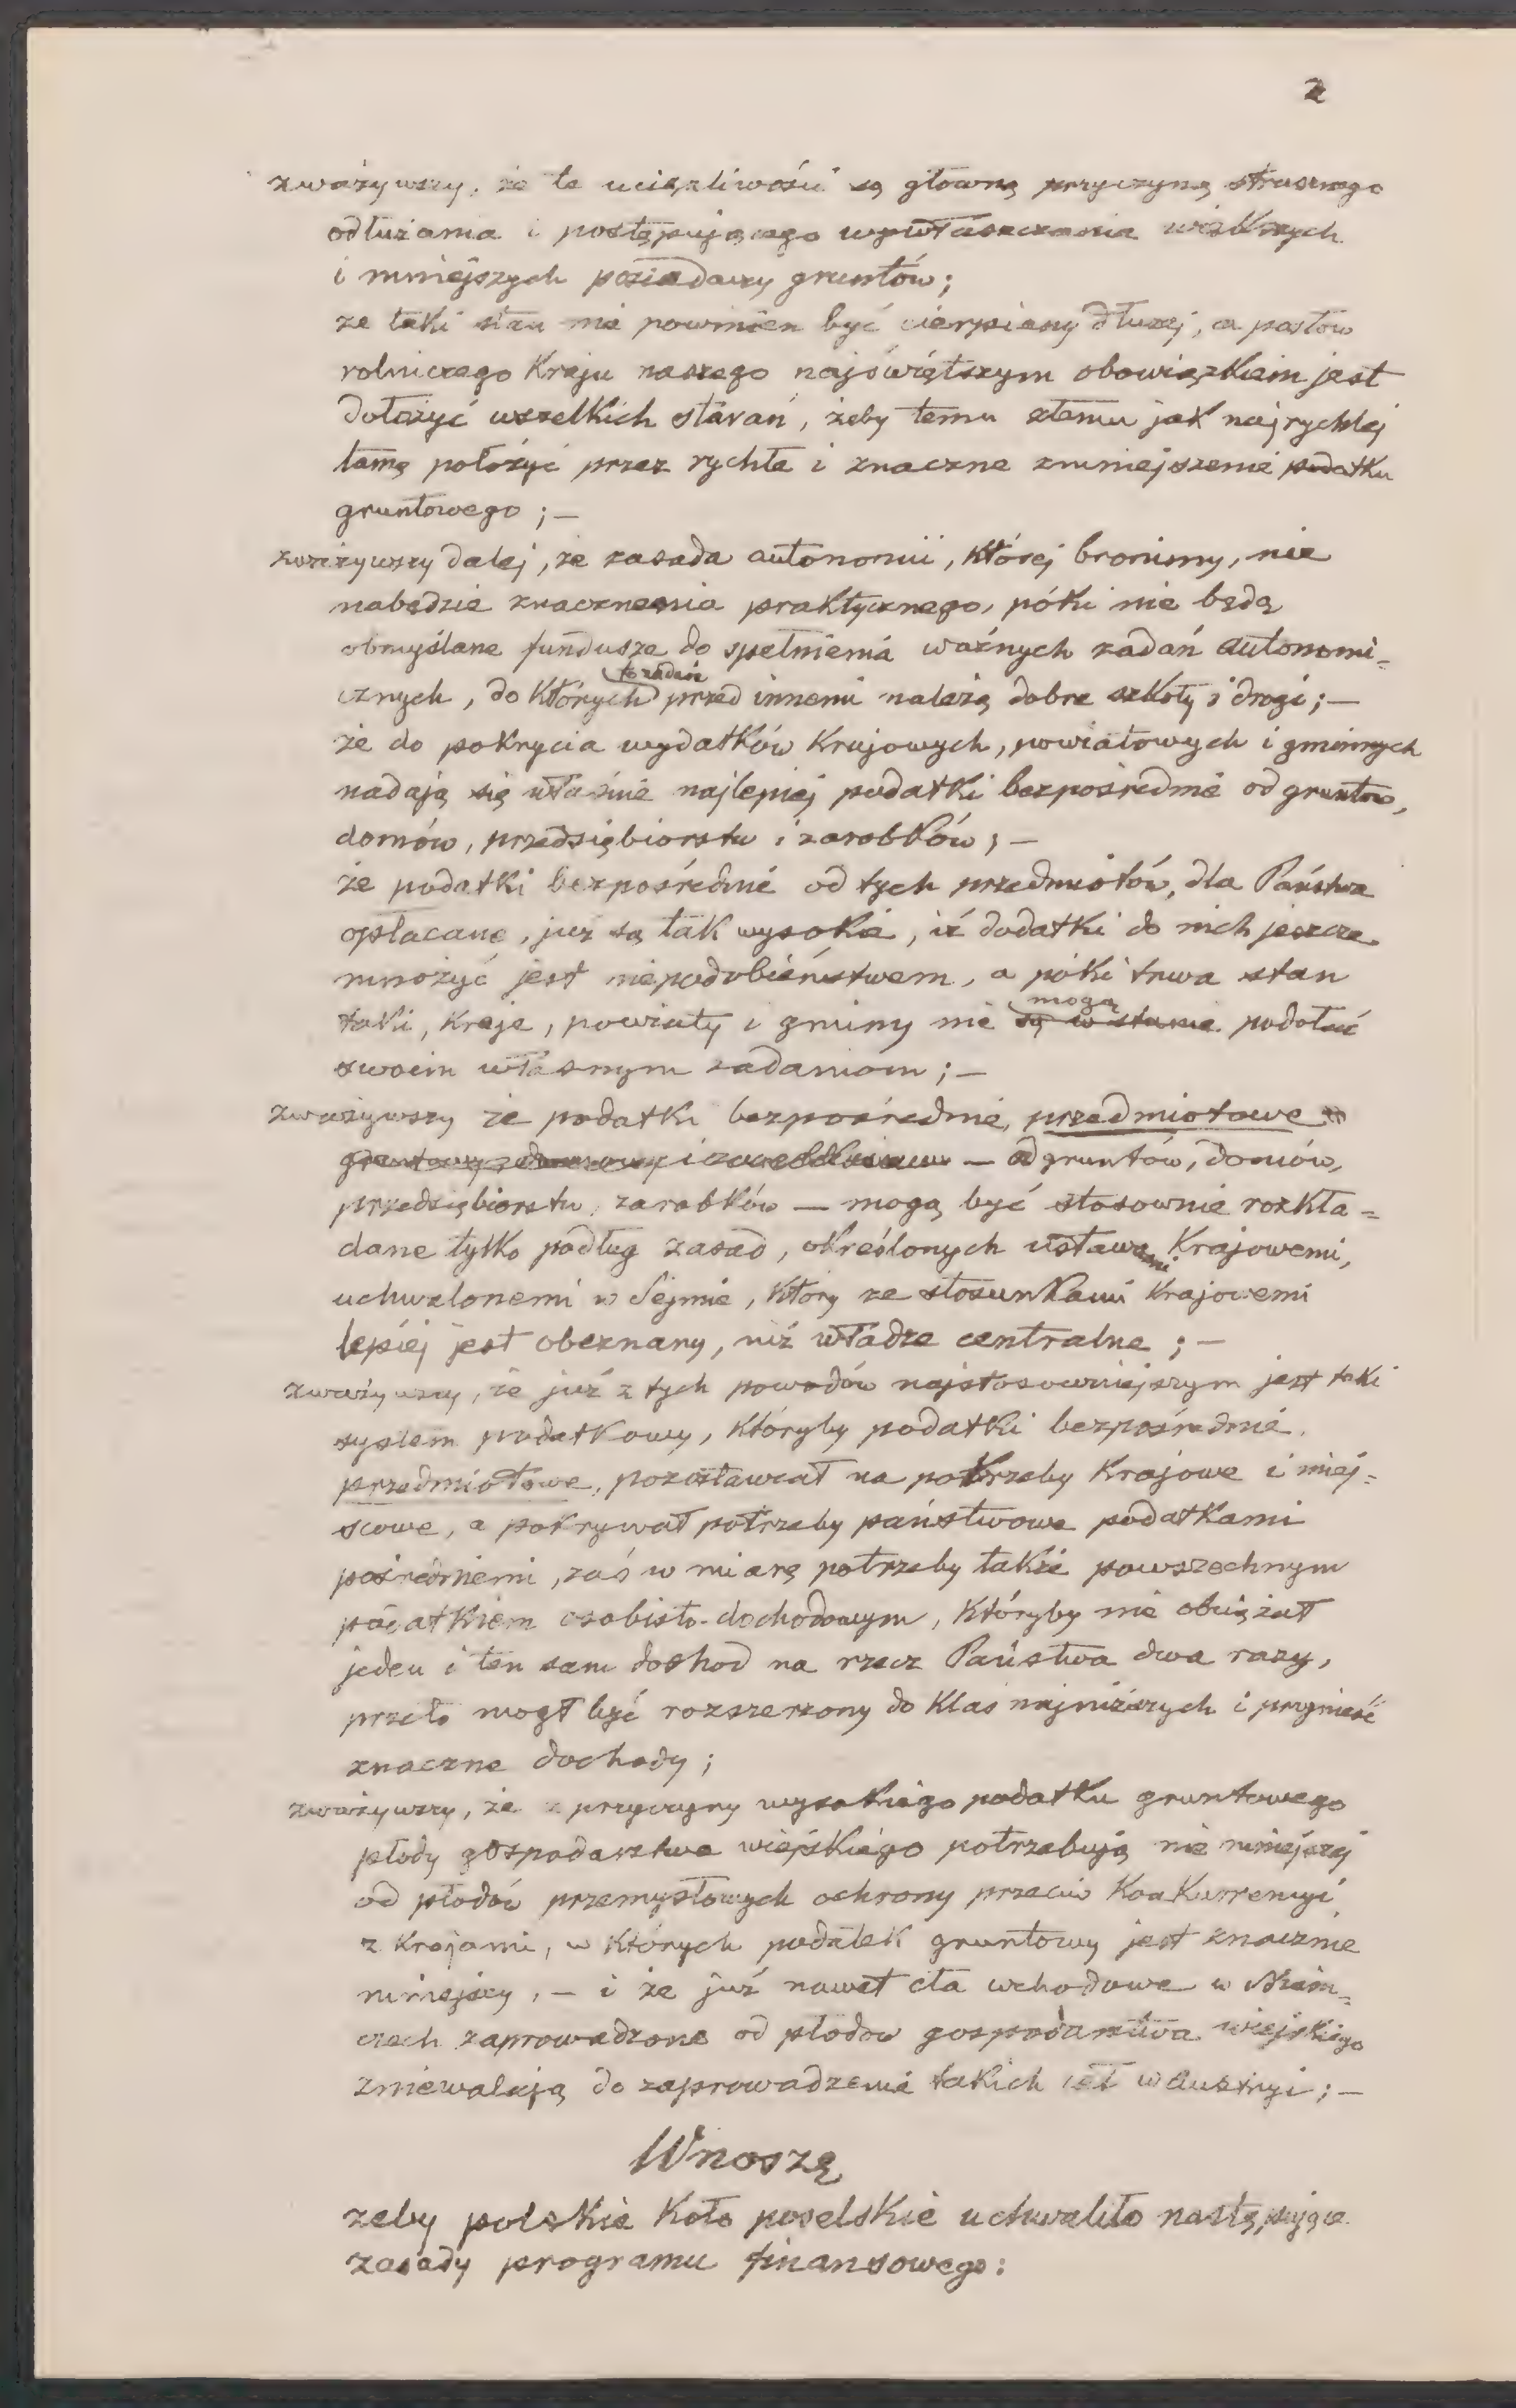 2
zważywszy, że te uciążliwości są główną przyczyną strasznego
odłużania i postępującego wywłaszczania większych
i mniejszych posiadaczy gruntów;
że taki stan nie powinien być cierpiany dłużej, a posłów
rolniczego Kraju naszego najświętszym obowiązkiem jest
dołożyć wszelkich starań, żeby temu złemu jak najrychlej
tamę położyć przez rychłe i znaczne zmniejszenie podatku
gruntowego ; —
zważywszy dalej, że zasada autonomii, której bronimy, nie
nabędzie znaczenia praktycznego, póki nie będą
obmyślane fundusze do spełnienia ważnych zadań autonomi=
cznych, do których to zadań przed innemi należą dobre szkoły i drogi ; —
że do pokrycia wydatków Krajowych, powiatowych i gminnych
nadają się właśnie najlepiej podatki bezpośrednie od gruntów,
domów, przedsiębiorstw i zarobków ; —
że podatki bezpośrednie od tych przedmiotów, dla Państwa
opłacane, już są tak wysokie, iż dodatki do nich jeszcze
mnożyć jest niepodobieństwem, a póki trwa stan
taki, Kraje, powiaty i gminy nie są w stanie mogą podołać
swoim własnym zadaniom ; —
zważywszy że podatki bezpośrednie, przedmiotowe
— od gruntów, domów,
przedsiębiorstw, zarobków — mogą być stosownie rozkła=
dane tylko podług zasad, określonych ustawami Krajowemi,
uchwalonemi w Sejmie, który ze stosunkami Krajowemi
lepiej jest obeznany, niż władze centralne ; —
zważywszy, że już z tych powodów najstosowniejszym jest taki
system podatkowy, któryby podatki bezpośrednie,
przedmiotowe, pozostawiał na potrzeby Krajowe i miej=
scowe, a pokrywał potrzeby państwowe podatkami
pośredniemi, zaś w miarę potrzeby także powszechnym
podatkiem osobisto-dochodowym, któryby nie obciążał
jeden i ten sam dochód na rzecz Państwa dwa razy,
przeto mógł być rozszerzony do Klas najniższych i przynieść
znaczne dochody ;
zważywszy, że z przyczyny wysokiego podatku gruntowego
płody gospodarstwa wiejskiego potrzebują nie mniejszej
od płodów przemysłowych ochrony przeciw Konkurrencyi
z Krajami, w których podatek gruntowy jest znacznie
mniejszy, — i że już nawet cła wchodowe w Niem=
czech zaprowadzone od płodów gospodarstwa wiejskiego
zniewalają do zaprowadzenia takich ceł w Austryi ; —
Wnoszę
żeby polskie Koło poselskie uchwaliło następujące
zasady programu finansowego :